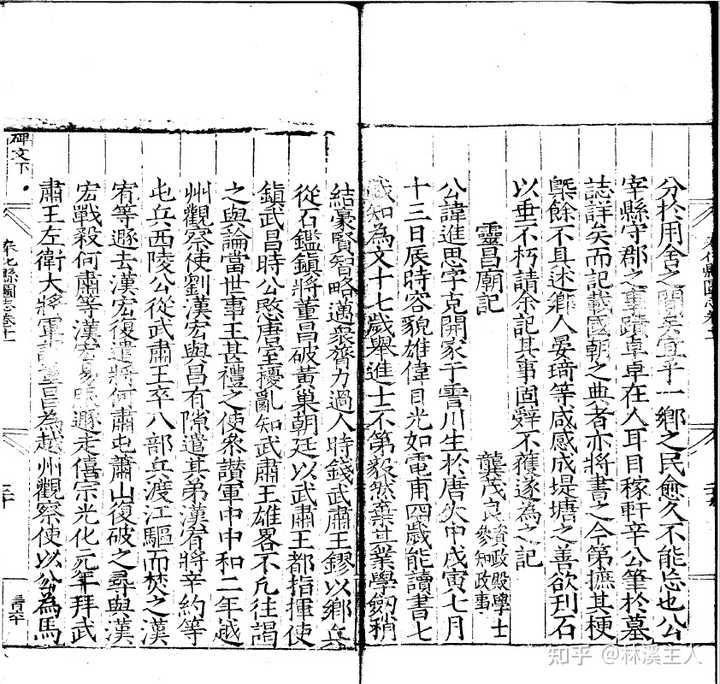 分於用舍之間矣宜乎一鄉之民愈久不能忘也公
宰縣守郡之事蹟卓卓在人耳目稼軒辛公筆於墓
誌詳矣而記載國朝之典者亦將書之今第摭其梗
槩餘不具述鄉人晏琦等咸感成堤塘之善欲刊石
以垂不朽請余記其事固辭不獲遂為之記
靈昌廟記 龔茂良 資政殿學士
參知政事
公諱進思字克開家于霅川生於唐大中戊寅七月
十三日辰時容貌雄偉目光如電甫四歲能讀書七
歲知為文十七歲舉進士不第毅然棄其業學劍稍
結豪賢智略邁衆膂力過人時錢武肅王鏐以鄉兵
從石鑑鎮將董昌破黃巢朝廷以武肅王都指揮使
鎮武昌時公愍唐室擾亂知武肅王雄畧不凢往謁
之與論當世事王甚禮之使參讚軍中中和二年越
州觀察使劉漢宏與昌有隙遣其弟漢宥將辛約等
屯兵西陵公從武肅王卒八部兵渡江驅而焚之漢
宥等遯去漢宏復遣將何肅屯蕭山復破之尋與漢
宏戰殺何肅等漢宏易服遯走僖宗光化元年拜武
肅王左衛大將軍董昌為越州觀察使以公為馬
碑文下
知乎 @林溪主人